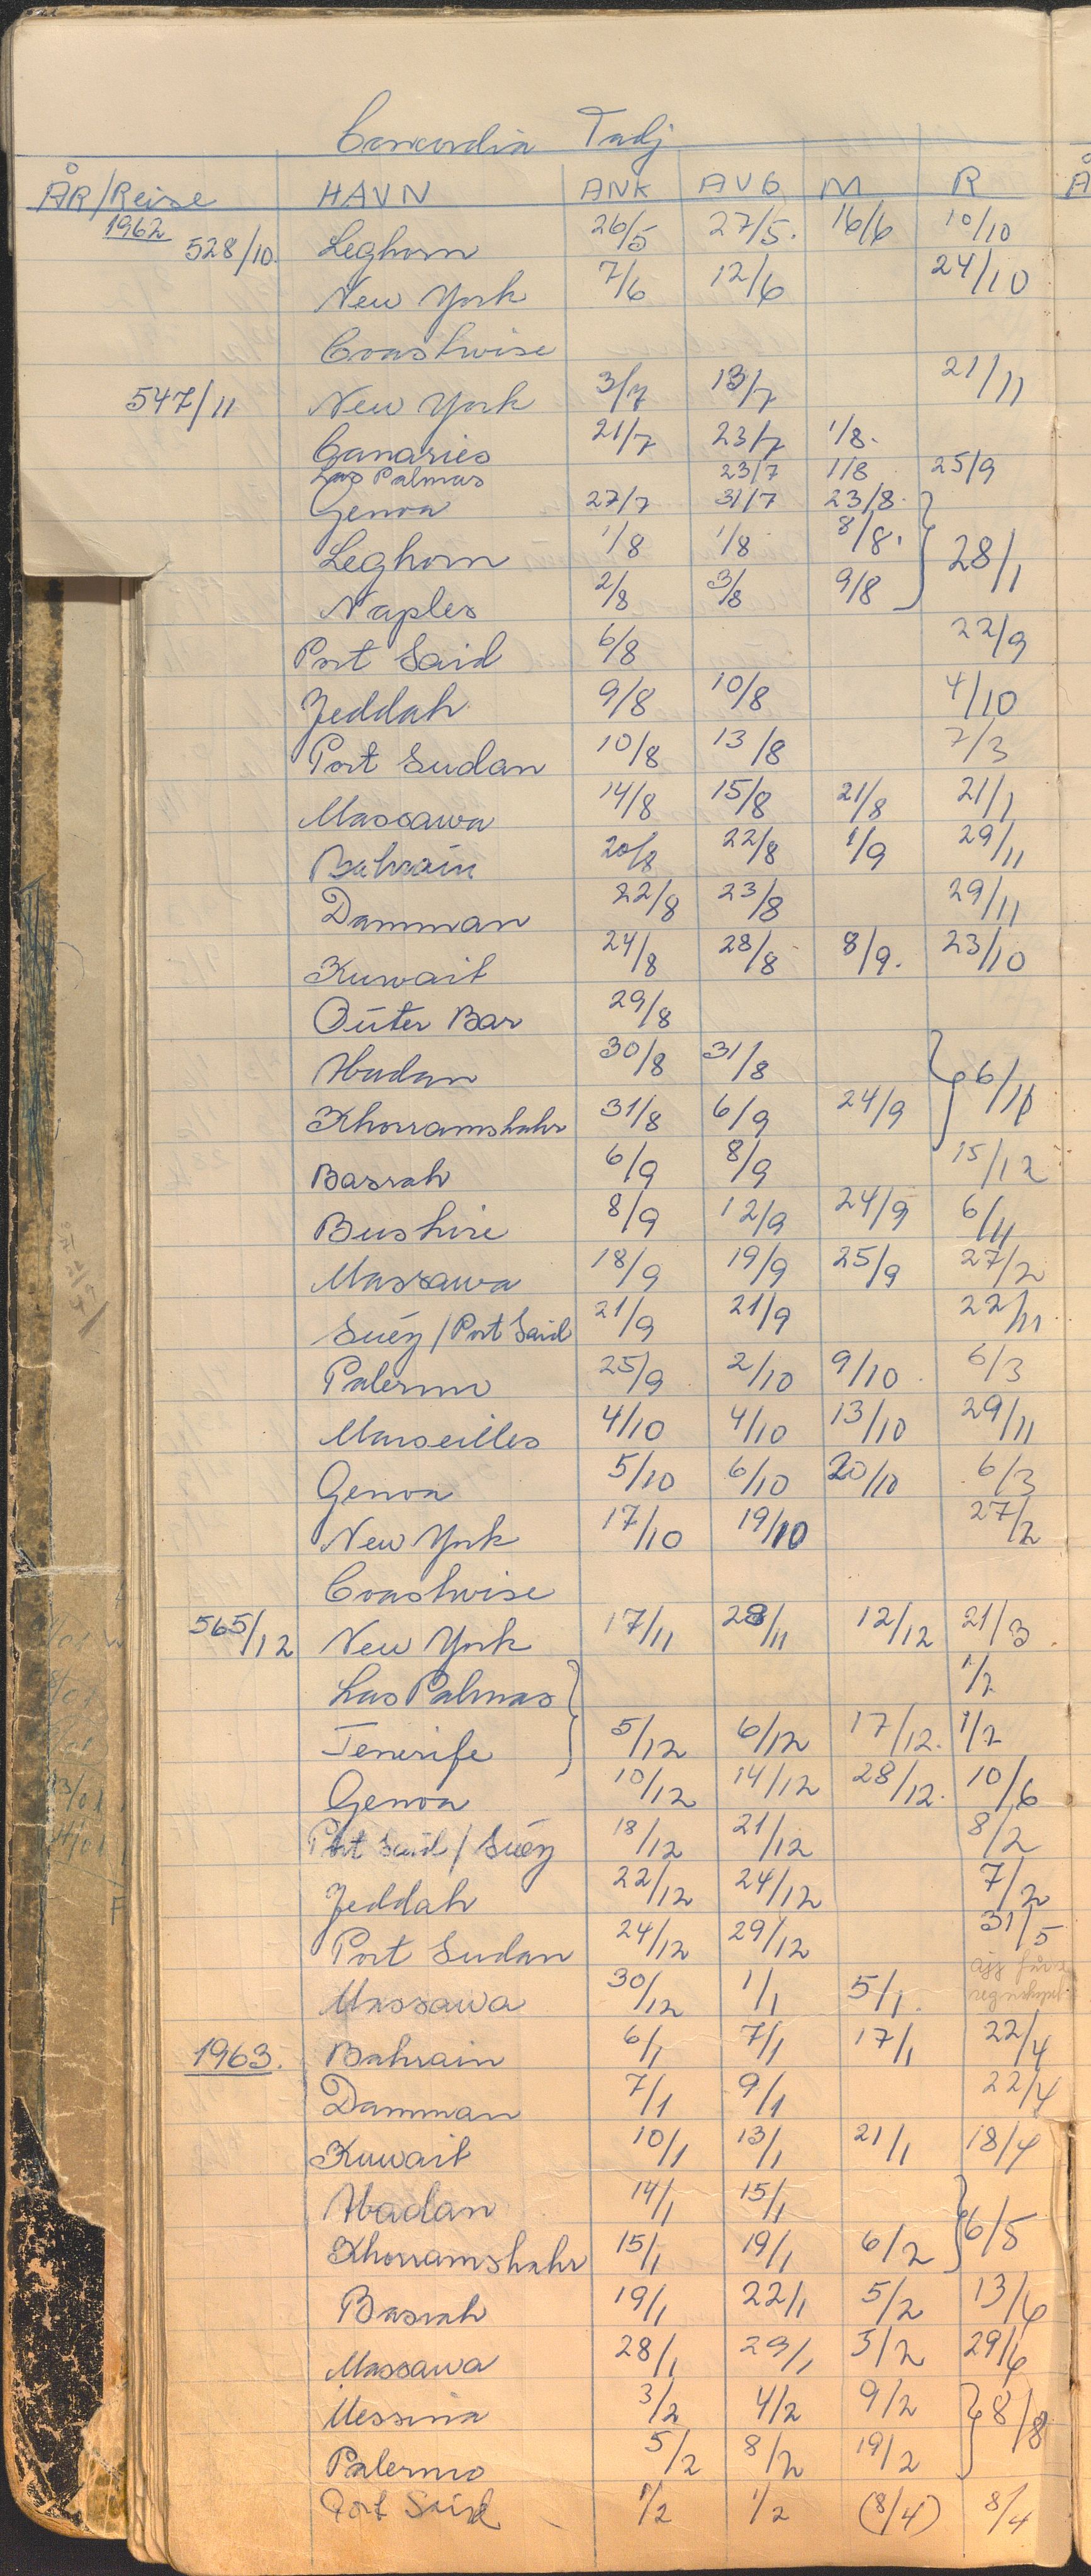 Concordia Tadj
ÅR/Reise HAVN ANK AVG M R
1962
528/10 Leghorn 26/5 27/5. 16/6 10/10
New York 7/6 12/6 24/10
Coastwise
547/11 New York 3/7 13/7 21/11
Canaries 21/7 23/7 1/8.
Las Palmas 23/7 1/8 25/9
Genoa 27/7 31/7 23/8.
Leghorn 1/8 1/8 8/8. 28/1
Naples 2/8 3/8 9/8
Port Said 6/8 22/9
Jeddah 9/8 10/8 4/10
Port Sudan 10/8 13/8 7/3
Massawa 14/8 15/8 21/8 21/1
Bahrain 20/8 22/8 1/9 29/11
Damman 22/8 23/8 29/11
Kuwait 24/8 28/8 8/9. 23/10
Outer Bar 29/8
Abadan 30/8 31/8 6/11
Khorramshahr 31/8 6/9 24/9
Basrah 6/9 8/9 15/12
Bushire 8/9 12/9 24/9 6/11
Massawa 18/9 19/9 25/9 27/2
Suez/Port Said 21/9 21/9 22/11
Palermo 25/9 2/10 9/10 6/3
Marseilles 4/10 4/10 13/10 29/11
Genoa 5/10 6/10 20/10 6/3
New York 17/10 19/10 27/2
Coastwise
565/12 New York 17/11 28/11 12/12 21/3
Las Palmas 1/2
Tenerife 5/12 6/12 17/12. 1/2
Genoa 10/12 14/12 28/12. 10/6
Port Said/Suez 18/12 21/12 8/2
Jeddah 22/12 24/12 7/2
Port Sudan 24/12 29/12 31/5
Massawa 30/12 1/1 5/1.
1963. Bahrain 6/1 7/1 17/1 22/4
Damman 7/1 9/1 22/4
Kuwait 10/1 13/1 21/1 18/4
Abadan 14/1 15/1 6/5
Khorramshahr 15/1 19/1 6/2
Basrah 19/1 22/1 5/2 13/6
Massawa 28/1 29/1 5/2 29/6
Messina 3/2 4/2 9/2 8/8
Palermo 5/2 8/2 19/2
Port Said 1/2 1/2 (8/4) 8/4